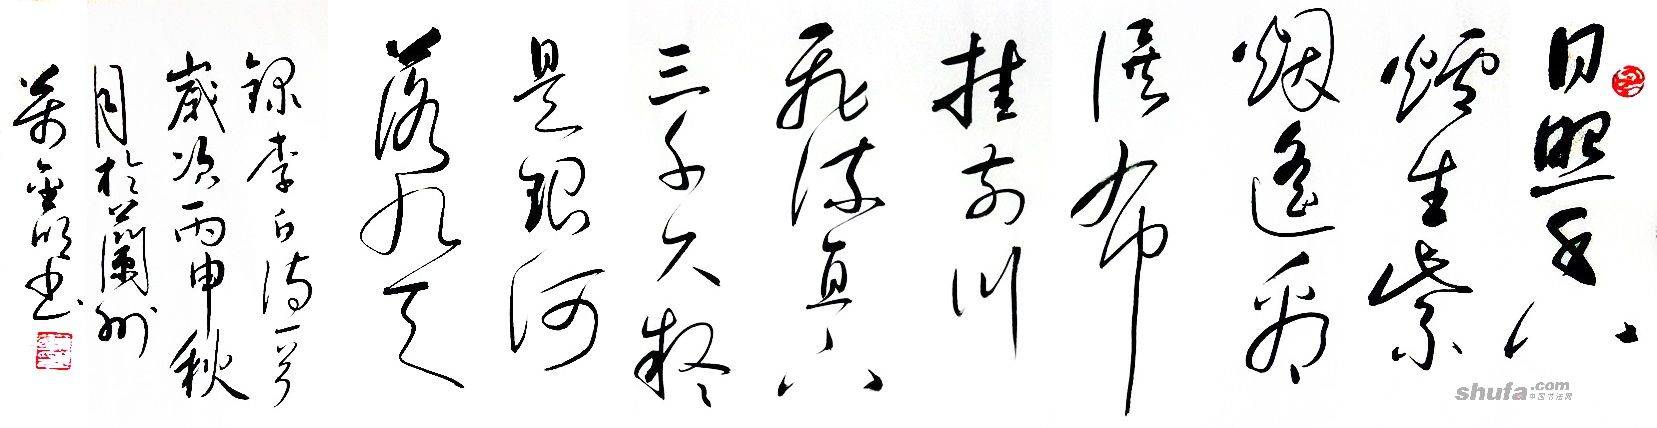 日照香
爐生紫
烟遙看
瀑布
挂前川
飛流直下
三千尺疑
是銀河
落九天
錄李白詩一首
歲次丙申秋
月於蘭州
金明書
shufa.com
中国书法网